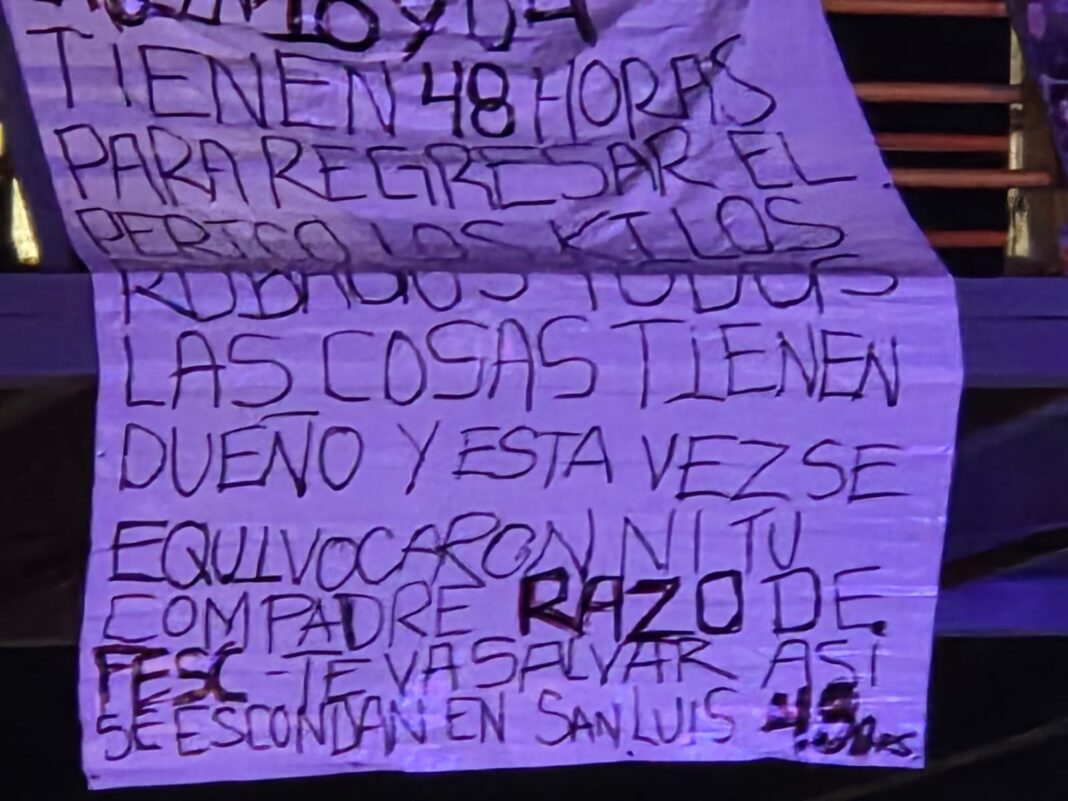 TIENEN 48 HORAS
PARA REGRESAR EL
PERICO LOS KILOS
ROBADOS TODOS
LAS COSAS TIENEN
DUEÑO Y ESTA VEZ SE
EQUIVOCARON NI TU
COMPADRE RAZO DE
FESC TE VA SALVAR ASI
SE ESCONDAN EN SAN LUIS